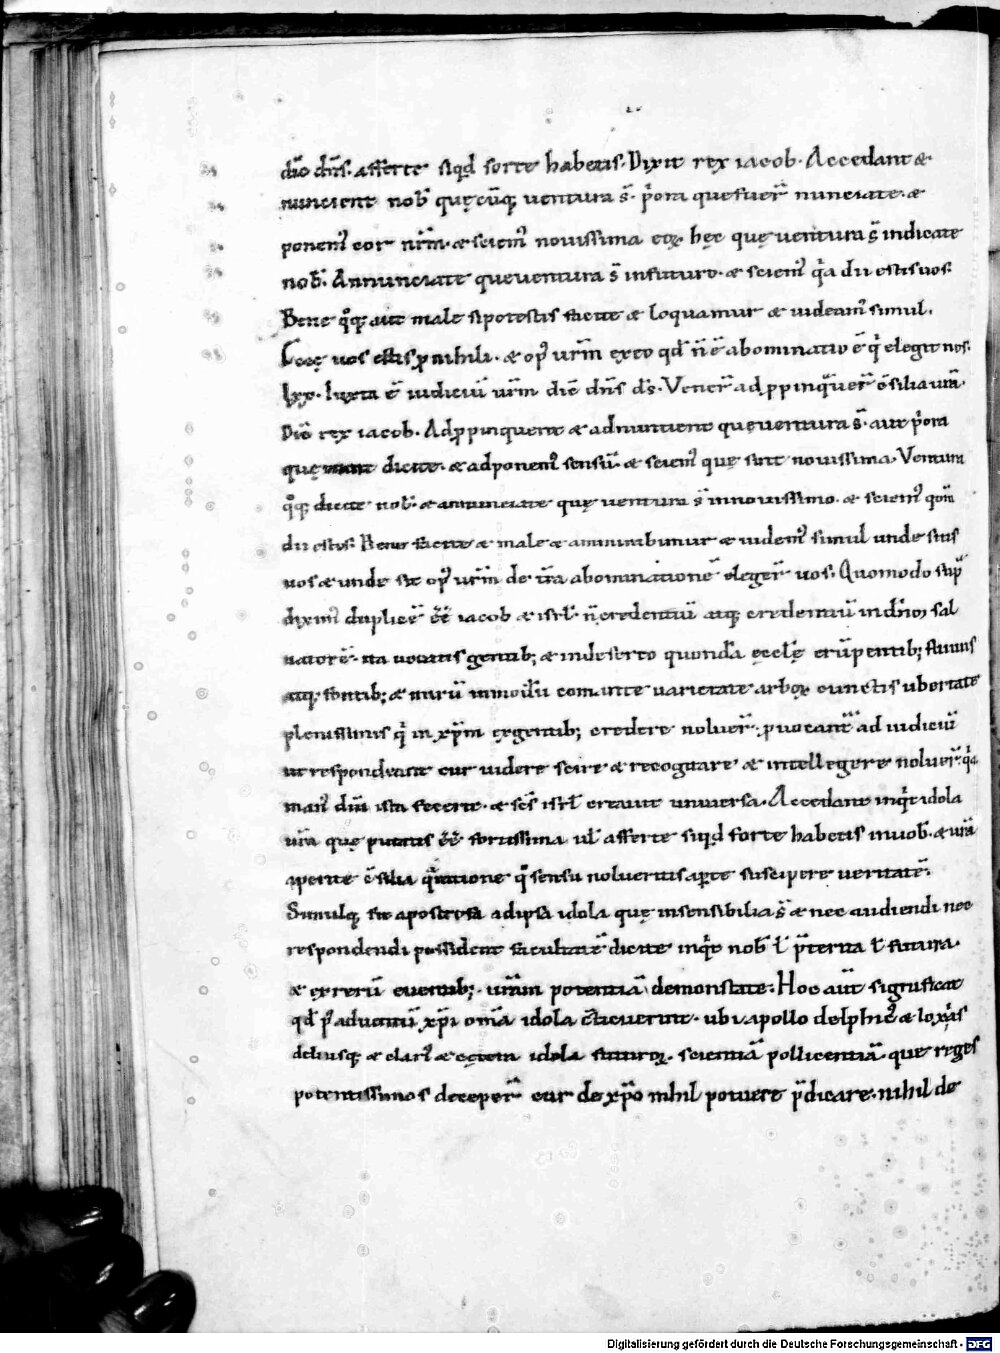 dic̄ dn̄s. afferte siq̇d forte habetis. Dixit rex iacob. Accedant &
nuncient nob̄ quęcūq; uentura s̄. p̄ora que fuer̄ nunciate. &
ponem⁹ cor nr̄m. & sciem⁹ nouissima eoꝝ. hęc quę uentura s̄ indicate
nob̄. Annunciate que uentura s̄ in futuro. & sciem⁹ q̇a dii estis uos.
Bene q̊q; aut male si potestis facite & loquamur & uideam⁹ simul.
Ecce uos estis ꝓ nihili. & op⁹ ur̄m ex eo qd̄ n̄ ē abominatio ē q̇ elegit nos.
lxx. Iuxta ē iudiciū ur̄m dic̄ dn̄s ds̄. Vener̄ adppinq̄uer̄ c̄silia ur̄a.
Dic̄ rex iacob. Adꝓpinquent & adnuntient que uentura s̄. aut p̄ora
quę dicite. & adponem⁹ sensū. & sciem⁹ quę sint nouissima. Ventura
q̊q; dicite nob̄. & annunciate quę uentura s̄ in nouissimo. & sciem⁹ qm̄
dii estis. Bene facite & male & ammirabimur & uidem⁹ simul unde sitis
uos & unde sit op⁹ ur̄m de tr̄a abominationē eleger̄ uos. Quomodo sup̄
diximus duplicē ēē iacob & isrl̄. n̄ credentiū atq; credentiū in dn̄m sal
uatorē. ita uocatis gentib; & in deserto quondā ęcclę̄ erūpentib; fluuiis
atq; fontib; & mirū in modū comante uarietate arboꝝ cunctis ubertate
plenissimis q̇ in xp̄m ex gentib; credere noluer̄. ꝓuocant̄ ad iudiciū
ut respondeant cur uidere scire & recogitare & intellegere noluer̄. q̇a
man⁹ dn̄i ista fecerit. & sc̄s isrl̄ creauit uniuersa. Accedant inq̇t idola
ur̄a quę putatis ēē fortissima ul̄ afferte siq̇d forte habetis in uob̄. & ur̄a
aperite c̄silia q̇ ratione q̊ sensu nolueritis aꝑte suscipere ueritatē.
Simulq; fit apostrofa ad ipsa idola quę insensibilia s̄ & nec audiendi nec
respondendi possident facultatē dicite inq̇t nob̄ l̄ p̄terita l̄ futura.
& ex rerū euentib;. ur̄am potentiā demonstrate. Hoc aut̄ significat
qd̄ p⁹ aduentū xp̄i om̄a idola c̄ticuerint. ubi apollo delphic⁹ & loxias
deliusq; & clari⁹ & cętera idola futuroꝝ. scientiā pollicentiā. que reges
potentissimos deceper̄ cur de xp̄o nihil potuere p̄dicare. nihil de
Digitalisierung gefördert durch die Deutsche Forschungsgemeinschaft - DFG